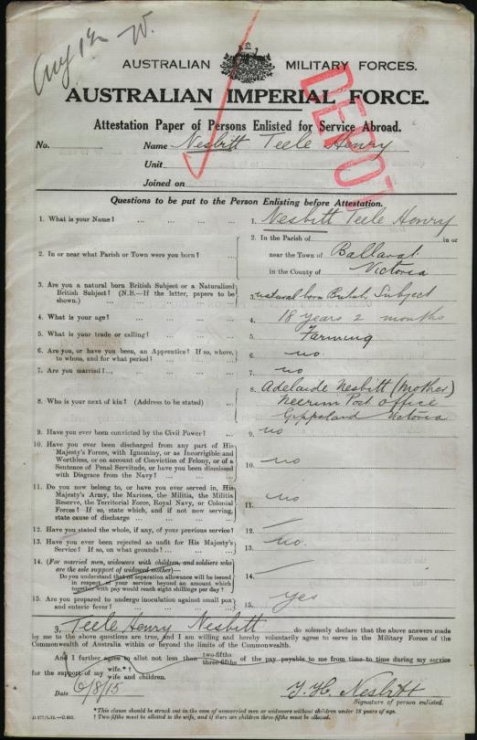 Aug 12
AUSTRALIAN MILITARY FORCES.
AUSTRALIAN IMPERIAL FORCE.
DEPOT
Attestation Paper of Persons Enlisted for Service Abroad.
No. Name Nesbitt Teele Henry
Unit
Joined on
Questions to be put to the Person Enlisting before Attestation.
1. What is your Name? ... 1. Nesbitt Teele Henry
2. In or near what Parish or Town were you born? ... 2. In the Parish of in or
near the Town of Ballarat
in the County of Victoria
3. Are you a natural born British Subject or a Naturalized
British Subject? (N.B.—If the latter, papers to be
shown.) 3. natural born British Subject
4. What is your age? 4. 18 years 2 months
5. What is your trade or calling? 5. Farming
6. Are you, or have you been, an Apprentice? If so, where,
to whom, and for what period? 6. no.
7. Are you married? 7. no
8. Who is your next of kin? (Address to be stated) 8. Adelaide Nesbitt (Mother)
Neerim Post Office
Gippsland Victoria
9. Have you ever been convicted by the Civil Power? 9. no
10. Have you ever been discharged from any part of His
Majesty's Forces, with Ignominy, or as Incorrigible and
Worthless, or on account of Conviction of Felony, or of a
Sentence of Penal Servitude, or have you been dismissed
with Disgrace from the Navy? 10. no
11. Do you now belong to, or have you ever served in, His
Majesty's Army, the Marines, the Militia, the Militia
Reserve, the Territorial Force, Royal Navy, or Colonial
Forces? If so, state which, and if not now serving,
state cause of discharge 11. no
12. Have you stated the whole, if any, of your previous service? 12. —
13. Have you ever been rejected as unfit for His Majesty's
Service? If so, on what grounds? 13. no.
14. (For married men, widowers with children, and soldiers who
are the sole support of widowed mother)—
Do you understand that no separation allowance will be issued
in respect of your service beyond an amount which
together with pay would reach eight shillings per day? 14. —
15. Are you prepared to undergo inoculation against small pox
and enteric fever? 15. Yes
I, Teele Henry Nesbitt do solemnly declare that the answers made
by me to the above questions are true, and I am willing and hereby voluntarily agree to serve in the Military Forces of the
Commonwealth of Australia within or beyond the limits of the Commonwealth.
And I further agree to allot not less than two-fifths three-fifths of the pay payable to me from time to time during my service
for the support of my wife.* wife and children.
Date 6/8/15 T. H. Nesbitt
Signature of person enlisted.
*This clause should be struck out in the case of unmarried men or widowers without children under 18 years of age.
† Two-fifths must be allotted to the wife, and if there are children three-fifths must be allotted.